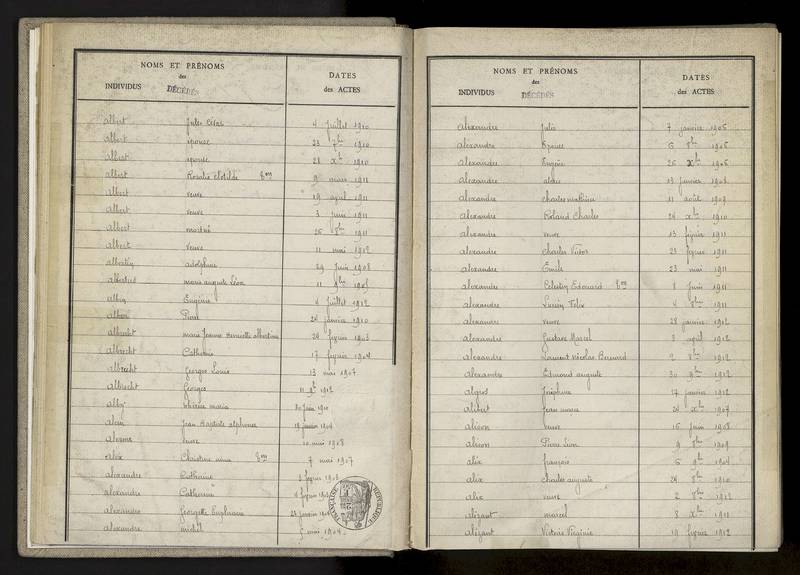 NOMS ET PRÉNOMS
des
INDIVIDUS DÉCÉDÉS
DATES
des ACTES
Albert Jules César 4 Juillet 1910
Albert épouse 23 7bre 1910
Albert épouse 28 Xbre 1910
Albert Rosalie Clotilde 9 mars 1911
Albert veuve 19 april 1911
Albert veuve 3 Juin 1911
Albert 26 8bre 1911
Albert veuve 11 mai 1912
adolphine 29 Juin 1908
marie auguste Léon 11 9bre
Albin Eugénie 4 Juillet 1912
Pierre 24 janvier 1910
Albrecht marie Jeanne Henriette albertine 24 février 1903
Albrecht Catherine 17 février 1904
Albrecht Georges Louis 13 mai 1907
Albrecht Georges 11 9bre 1912
maria 30 Juin 1910
Jean Baptiste alphonse 19 janvier 1904
veuve 20 mai 1908
Alix Christine 7 mai 1907
alexandre Catherine février
alexandre Catherine février
alexandre Georgette Euphrasie 23 janvier
alexandre michel 5 mai 1904
NOMS ET PRÉNOMS
des
INDIVIDUS DÉCÉDÉS
DATES
des ACTES
Alexandre Julie 7 janvier 1906
Alexandre Epouse 6 8bre 1906
Alexandre Eugène 26 Xbre 1906
Alexandre 13 janvier
Alexandre Charles 11 août 1909
Alexandre Roland Charles 24 Xbre 1910
Alexandre veuve 13 février 1911
Alexandre Charles Victor 23 février 1911
Alexandre Emile 23 mai 1911
Alexandre Célestin Edouard 8 Juin 1911
Alexandre Lucien Félix 4 8bre 1911
Alexandre veuve 28 janvier 1912
Alexandre Gustave Marcel 3 april 1912
Alexandre Laurent Nicolas Bernard 2 8bre 1912
Alexandre Edmond auguste 30 9bre 1912
Joséphine 17 janvier 1912
Alibert Jean 24 Xbre 1907
Alison veuve 16 Juin 1908
Alison Pierre Léon 9 8bre 1909
Alix françois 6 9bre 1904
Alix Charles auguste 24 8bre 1910
Alix veuve 2 8bre 1912
Alizant marcel 8 Xbre 1911
Alizant Victoire Virginie 19 février 1912